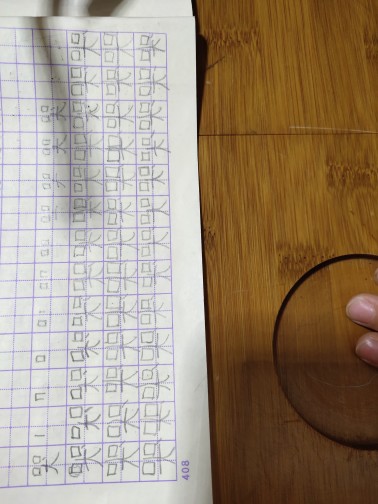 哭 丨 冂 口 口丨 口冂 吅 吅一 吅ナ 吅大 哭
哭哭哭哭哭哭哭哭哭哭哭哭哭
哭哭哭哭哭哭哭哭哭哭哭哭哭
哭哭哭哭哭哭哭哭哭哭哭哭哭
408